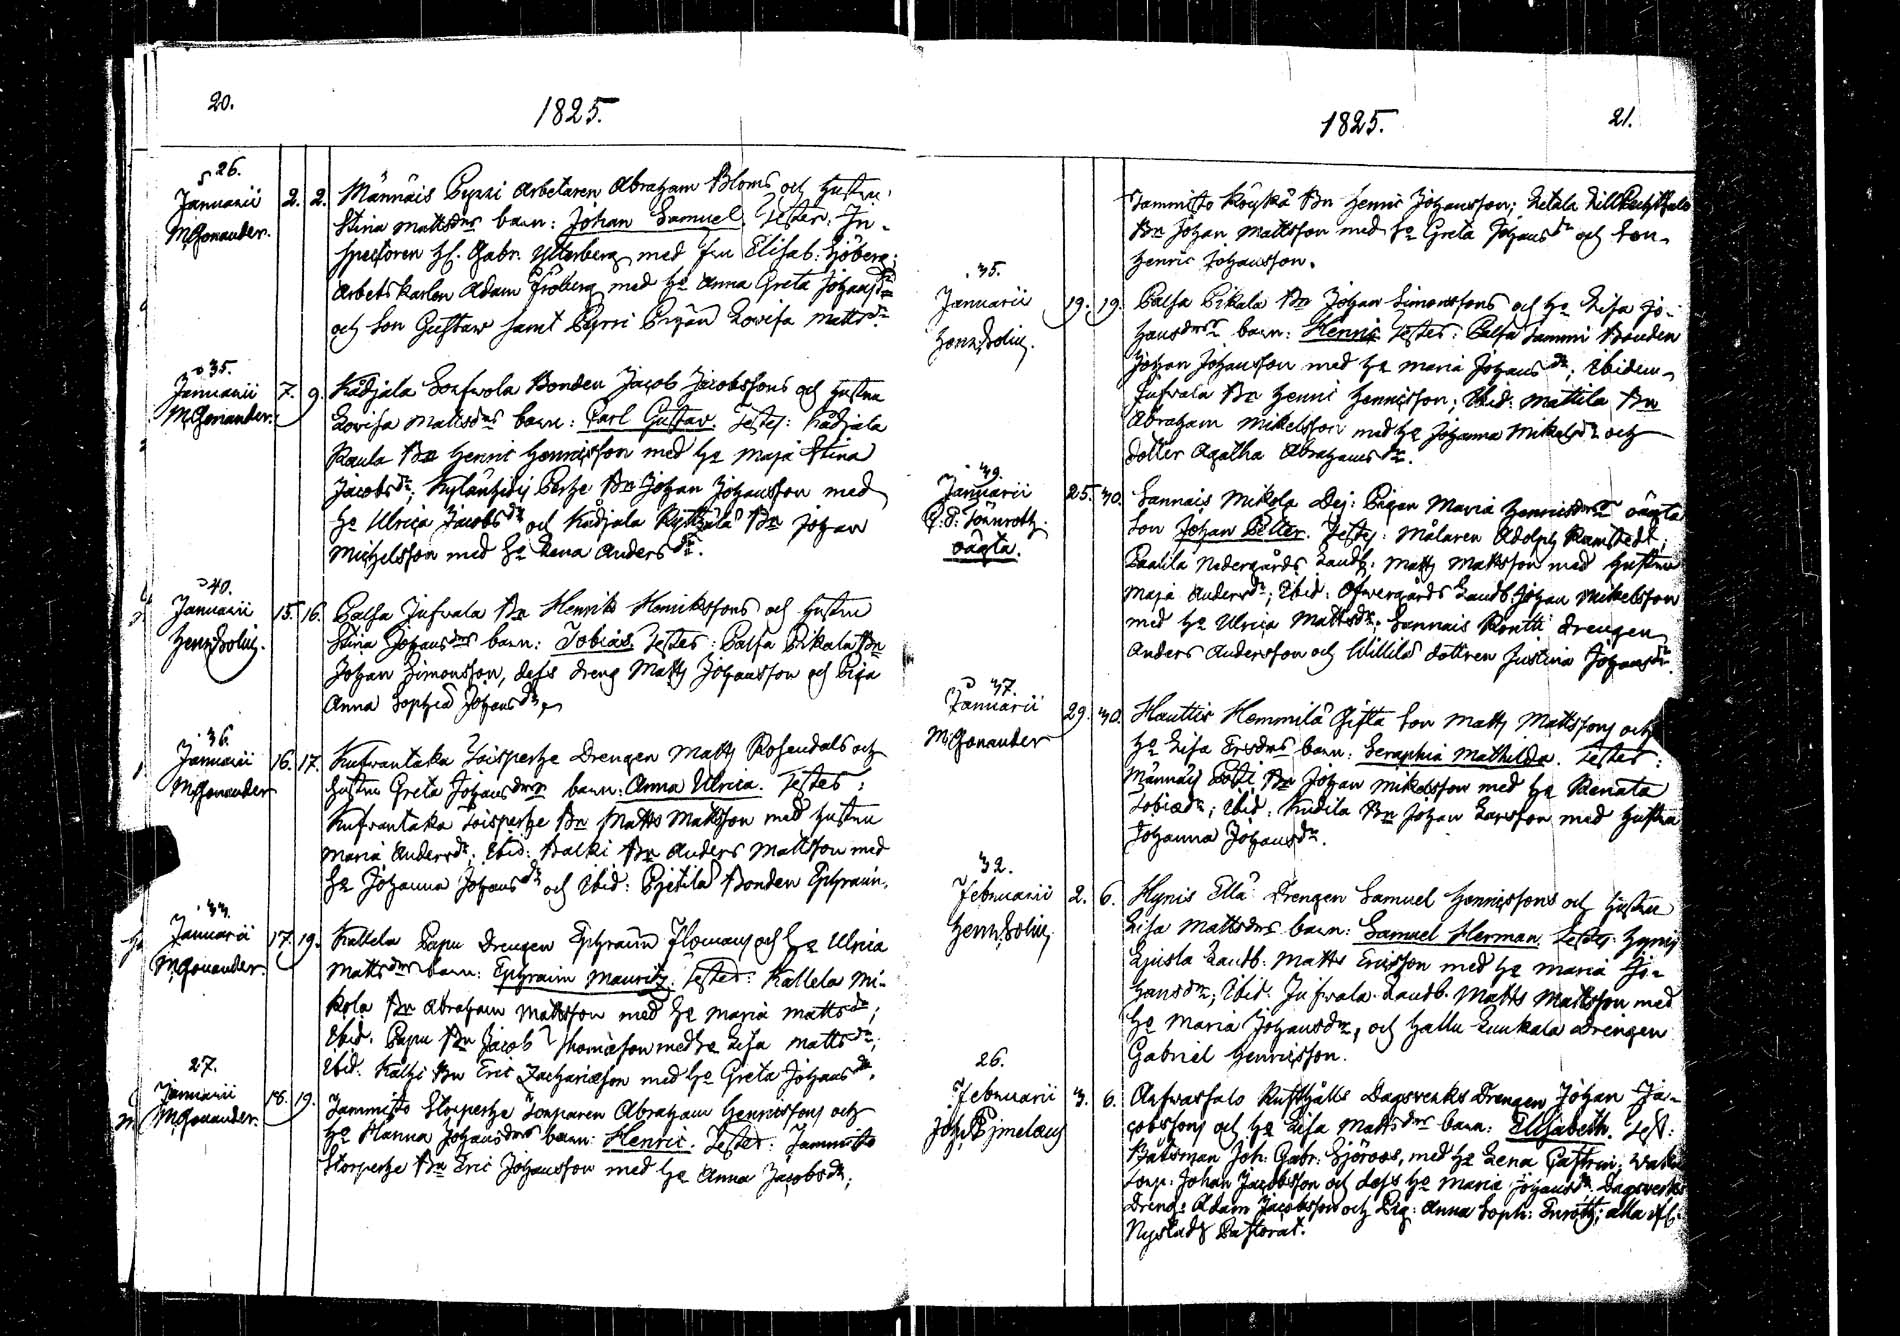 20.
1825.
26.
Januarii
M. Gonander.
2. 2. Männäis Pyssi Arbetaren Abraham Bloms och hustru
Stina Mattsdrs barn: Johan Samuel. Testes: In-
spectoren H. Gabr. Ytterberg med fru Elisab: Sjöberg;
Arbetskarlen Adam Fröberg med Ho Anna Greta Johansdr
och Son Gustaw samt Pyssi Pigan Lovisa Mattsdr.
35.
Januarii
M. Gonander.
7. 9. Kådjala Bonden Jacob Jacobssons och hustru
Lovisa Mattsdrs barn: Carl Gustav. Testes: Kådjala
Paula Bn Henric Henricsson med Ho Maja Stina
Jacobsdr; Bn Johan Johansson med
Ho Ulrica Jacobsdr och Kådjala Bn Johan
Michelsson med Ho Lena Andersdr.
40.
Januarii
15. 16. Palsa Jufvala Bn Henrik Henrikssons och hustru
Stina Johansdrs barn: Tobias. Testes: Palsa Pikala Bn
Johan Simonsson, dess dreng Matts Johansson och Piga
Anna Sophia Johansdr
36.
Januarii
M. Gonander
16. 17. Drengen Matts Rosendals och
hustru Greta Johansdrs barn: Anna Ulrica. Testes:
Bn Matts Mattsson med hustru
Maria Andersdr; Ibid: Balki Bn Anders Mattsson med
Ho Johanna Johansdr och Ibid: Bonden Ephraim.
33.
Januarii
M. Gonander.
17. 19. Kallela Papu Drengen Ephraim och Ho Ulrica
Mattsdrs barn: Ephraim Mauritz. Testes: Kallela Mi-
kola Bn Abraham Mattsson med Ho Maria Mattsdr;
Ibid. Papu Bn Jacob Thomasson med Ho Lisa Mattsdr;
Ibid. Bn Eric Zachariasson med Ho Greta Johansdr.
27.
Januarii
M. Gonander.
18. 19. Tammisto Storperhe Torparen Abraham Henricssons och
Ho Hanna Johansdrs barn: Henric. Testes: Tammisto
Storperhe Bn Eric Johansson med Ho Anna Jacobsdr;
1825.
21.
Tammisto Bn Henric Johansson;
Bn Johan Mattsson med Ho Greta Johansdr och Son
Henric Johansson.
35.
Januarii
19. 19. Palsa Pikala Bn Johan Simonssons och Ho Lisa Jo-
hansdrs barn: Henric Testes: Palsa Tammi Bonden
Johan Johansson med Ho Maria Johansdr; Ibidem
Jufvala Bn Henric Henricsson; Ibid: Mattila Bn
Abraham Mikelsson med Ho Johanna Mikelsdr och
dotter Agatha Abrahamsdr.
39.
Januarii
Lönnroth.
oägta.
25. 30. Sannais Mikola Dej: Pigan Maria Henricsdrs oägta
Son Johan Petter. Testes: Målaren Adolph Ramstedt;
Paalila Nedergårds Landb: Matts Mattsson med hustru
Maja Andersdr; Ibid: Öfvergårds Landb: Johan Mikelsson
med Ho Ulrica Mattsdr. Sannais Pontti drengen
Anders Andersson och dottren Justina Johansdr.
37.
Januarii
M. Gonander
29. 30. Hauttis Hemmilä Gifta Son Matts Mattssons och
Ho Lisa Ersdrs barn: Seraphia Mathilda. Testes:
Männäis Bn Johan Mikelsson med Ho Renata
Tobiædr; Ibid: Kudila Bn Johan Larsson med hustru
Johanna Johansdr.
32.
Februarii
2. 6. Hynis Ellä Drengen Samuel Henricssons och hustru
Lisa Mattsdrs barn: Samuel Herman. Testes: Hynis
Landb. Matts Ericsson med Ho Maria Jo-
hansdr; Ibid: Jufvala Landb. Matts Mattsson med
Ho Maria Johansdr, och Hallu drengen
Gabriel Henricsson.
26.
Februarii
3. 6. Rusthålls Dagsverks Drengen Johan Ja-
cobssons och Ho Lisa Mattsdrs barn: Elisabeth. Test:
Båtsman Joh: Gabr: Sjöroos, med Ho Lena Castren;
Torp: Johan Jacobsson och dess Ho Maria Johansdr, Dagsverks
Dreng: Adam Jacobsson och Pig: Anna Soph: alla af
Nystads Pastorat.